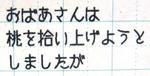 おばあさんは
桃を拾い上げようと
しましたが